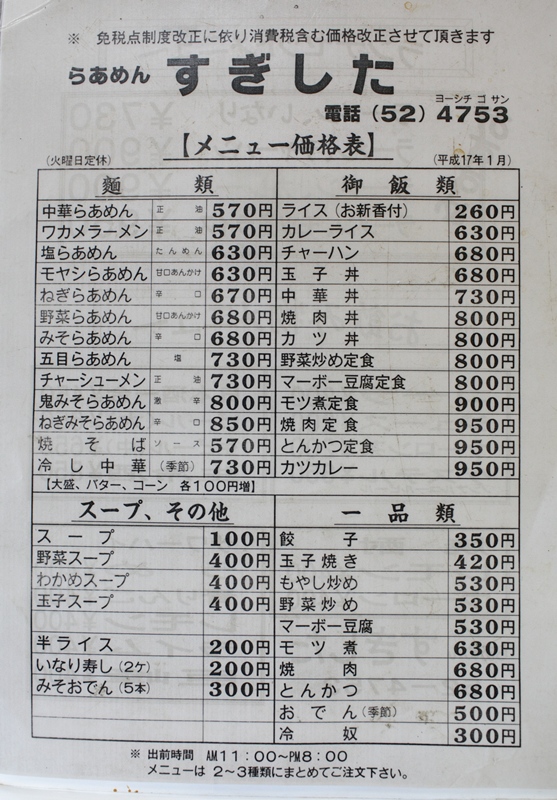 ※ 免税点制度改正に依り消費税含む価格改正させて頂きます
らあめん すぎした
ヨーシチ ゴ サン
電話(52)4753
【メニュー価格表】
(火曜日定休)
(平成17年1月)
麺類
中華らあめん 正油 570円
ワカメラーメン 正油 570円
塩らあめん たんめん 630円
モヤシらあめん 甘口あんかけ 630円
ねぎらあめん 辛口 670円
野菜らあめん 甘口あんかけ 680円
みそらあめん 辛口 680円
五目らあめん 塩 730円
チャーシューメン 正油 730円
鬼みそらあめん 激辛 800円
ねぎみそらあめん 辛口 850円
焼そば ソース 570円
冷し中華 (季節) 730円
【大盛、バター、コーン 各100円増】
御飯類
ライス(お新香付) 260円
カレーライス 630円
チャーハン 680円
玉子丼 680円
中華丼 730円
焼肉丼 800円
カツ丼 800円
野菜炒め定食 800円
マーボー豆腐定食 800円
モツ煮定食 900円
焼肉定食 950円
とんかつ定食 950円
カツカレー 950円
スープ、その他
スープ 100円
野菜スープ 400円
わかめスープ 400円
玉子スープ 400円
半ライス 200円
いなり寿し(2ケ) 200円
みそおでん(5本) 300円
一品類
餃子 350円
玉子焼き 420円
もやし炒め 530円
野菜炒め 530円
マーボー豆腐 530円
モツ煮 630円
焼肉 680円
とんかつ 680円
おでん(季節) 500円
冷奴 300円
※ 出前時間 AM11:00~PM8:00
メニューは 2~3種類にまとめてご注文下さい。